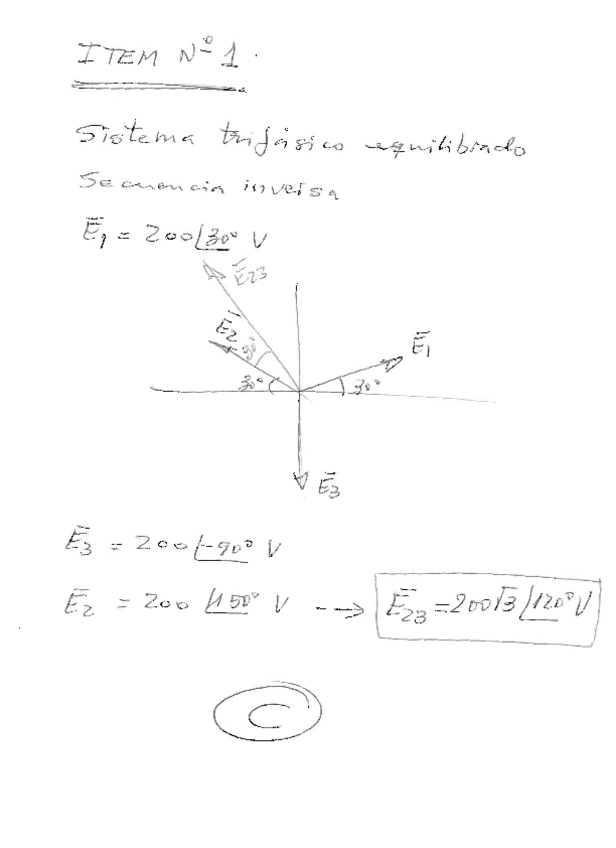 ITEM Nº 1.
Sistema trifásico equilibrado
Secuencia inversa
Ē₁ = 200∠30° V
Ē₂₃
Ē₂
30°
Ē₁
30°
30°
Ē₃
Ē₃ = 200∠-90° V
Ē₂ = 200∠150° V --→ Ē₂₃ = 200√3∠120° V
C